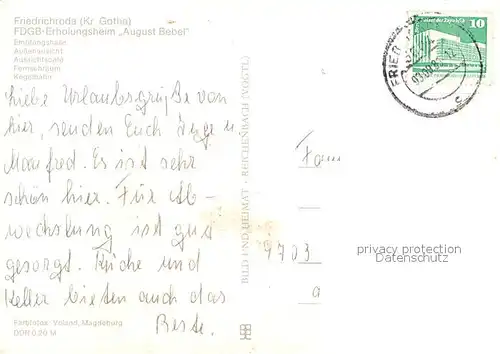 Friedrichroda (Kr. Gotha)
FDGB-Erholungsheim „August Bebel"
Empfangshalle
Außenansicht
Aussichtscafé
Fernsehraum
Kegelbahn
Liebe Urlaubsgrüße von
hier, senden Euch Inge u.
Manfred. Es ist sehr
schön hier. Für Ab-
wechslung ist gut
gesorgt. Küche und
Keller bieten auch das
Beste.
Farbfotos: Voland, Magdeburg
DDR 0,20 M
BILD UND HEIMAT · REICHENBACH (VOGTL)
10
FRIED
Fam
9703
privacy protection
Datenschutz